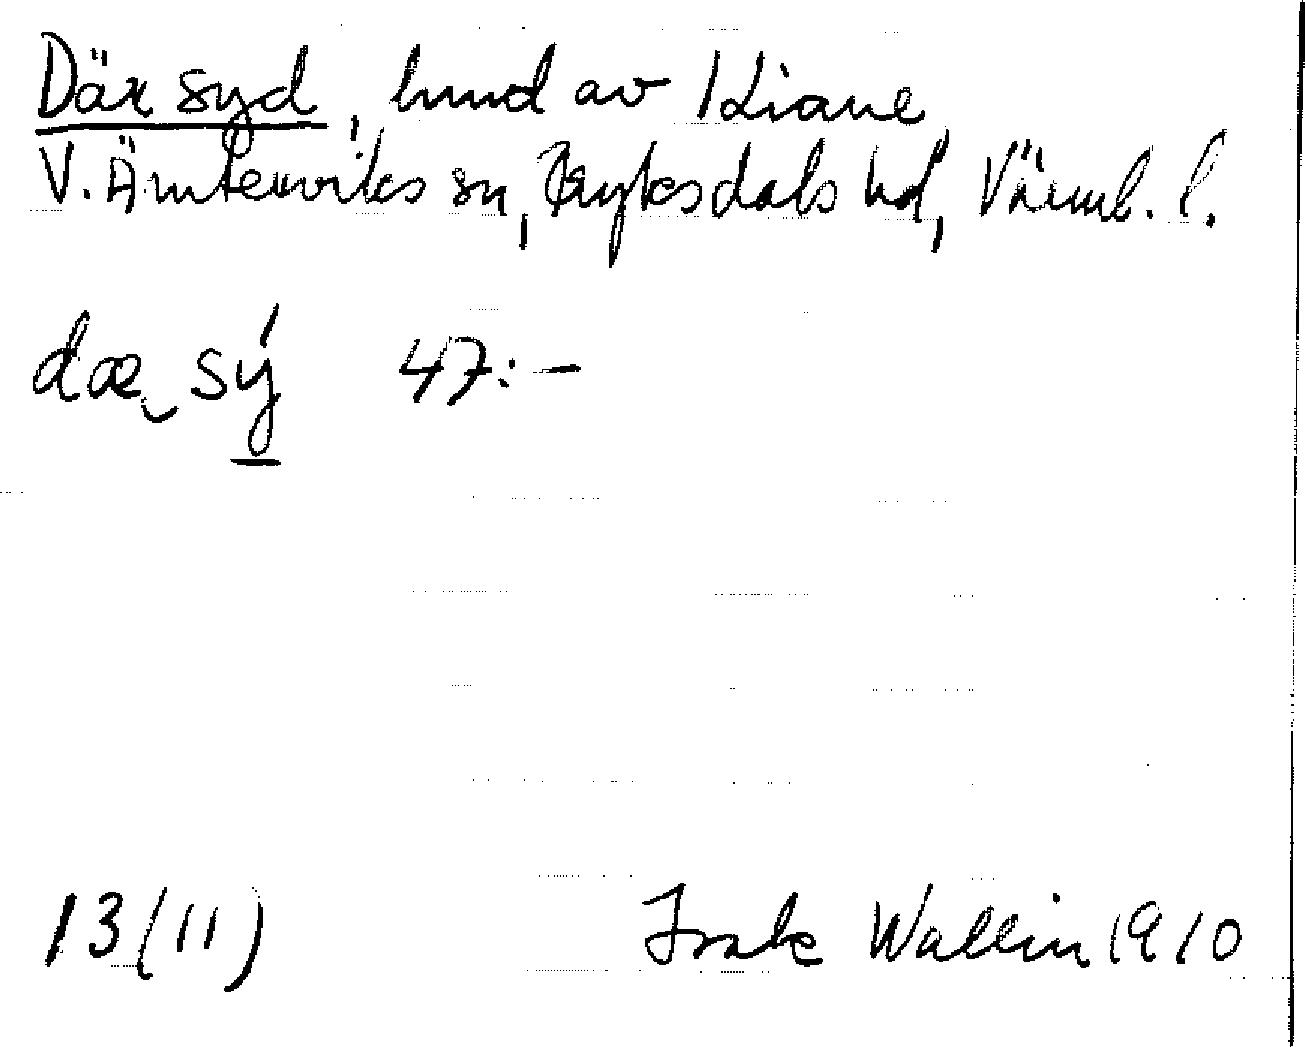 Där syd, hmd av Kiane
V. Ämterviks sn, Fryksdals hd, Värml. l.
dæ͜ sý 47:-
13 (11) Isak Wallin 1910